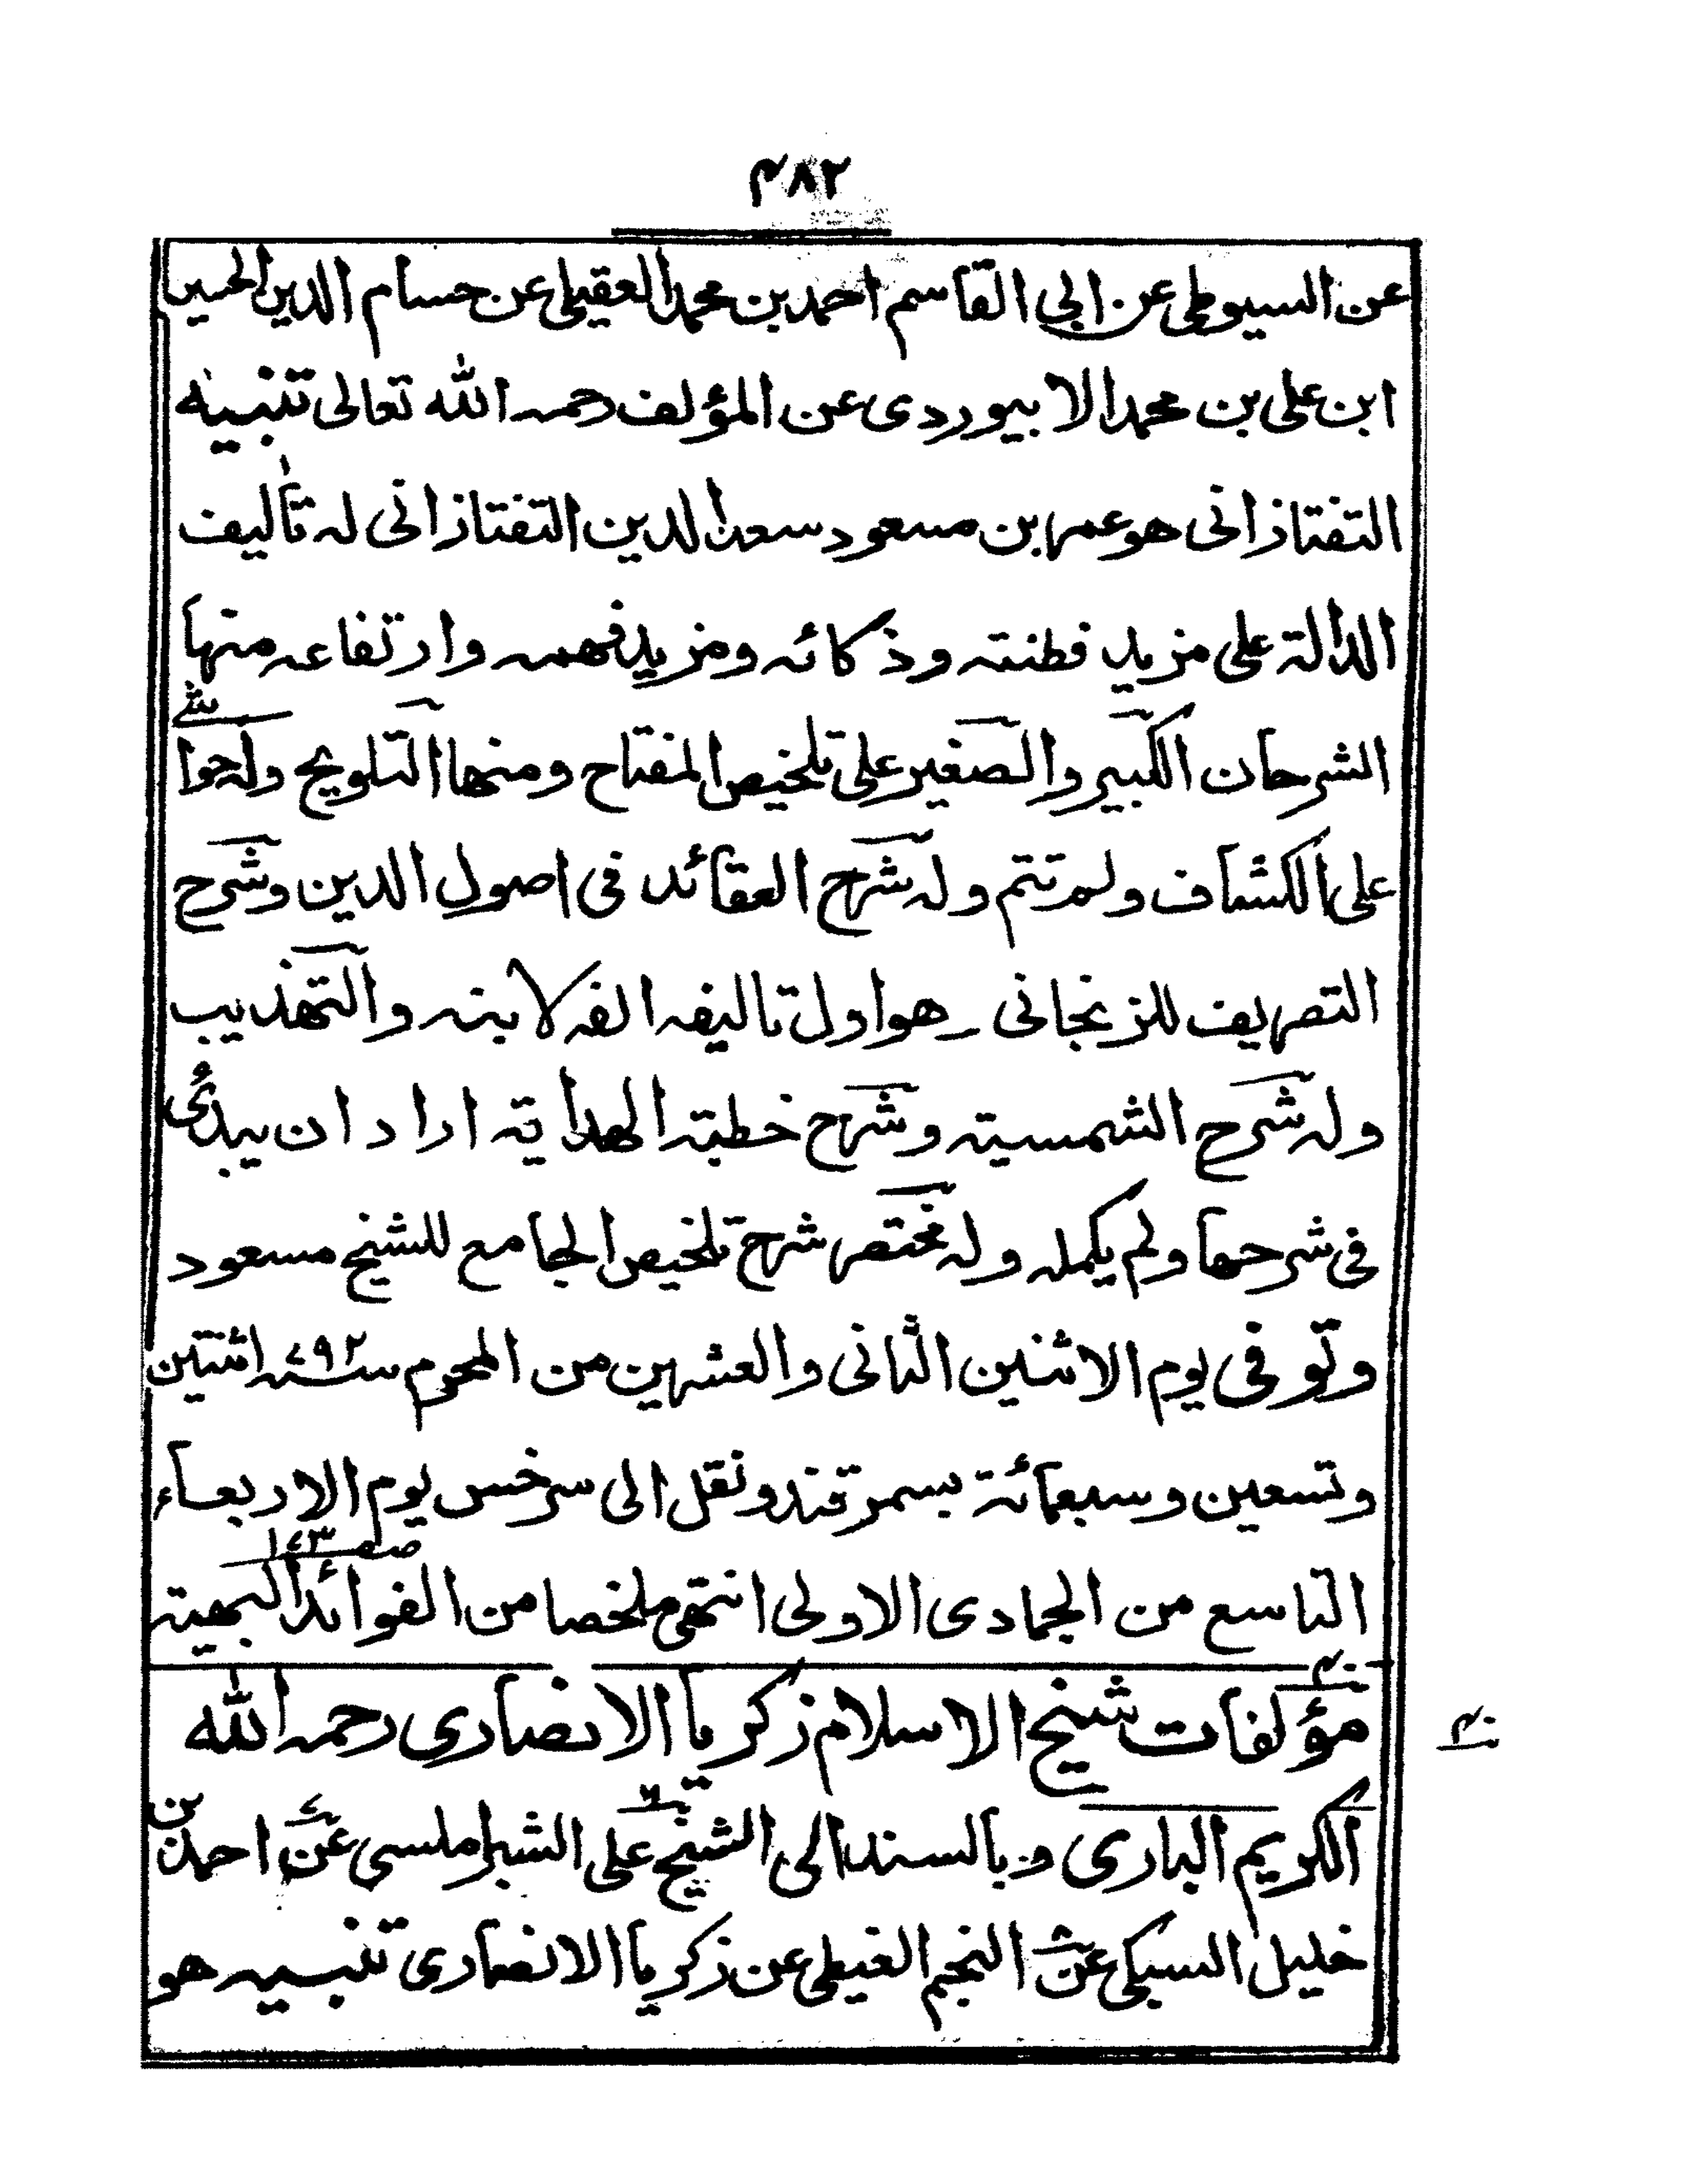 ٤٨٢
عن السيوطى عن ابى القاسم احمد بن محمد العقيلى عن حسام الدين الحسين
ابن على بن محمد الابيوردى عن المؤلف رحمه الله تعالى تنبيه
التفتازانى هو عمر بن مسعود سعد الدين التفتازانى له تآليف
الدالة على مزيد فطنته وذكائه ومزيد فهمه وارتفاعه منها
الشرحان الكبير والصغير على تلخيص المفتاح ومنها التلويح وله حواشى
على الكشاف ولم تتم وله شرح العقائد فى اصول الدين وشرح
التصريف للزنجانى وهو اول تاليفه الفه لابنه والتهذيب
وله شرح الشمسية وشرح خطبة الهداية اراد ان يبدئ
فى شرحها ولم يكمله وله مختصر شرح تلخيص الجامع للشيخ مسعود
وتوفى يوم الاثنين الثانى والعشرين من المحرم سنة ٧٩٢ اثنتين
وتسعين وسبعمائة بسمرقند ونقل الى سرخس يوم الاربعاء
التاسع من الجمادى الاولى انتهى ملخصا من الفوائد البهية صه ١٤٣
مؤلفات شيخ الاسلام زكريا الانصارى رحمه الله
الكريم البارى وبالسند الى الشيخ على الشبراملسى عن احمد بن
خليل السبكى عن النجم الغيطى عن زكريا الانصارى تنبيه هو